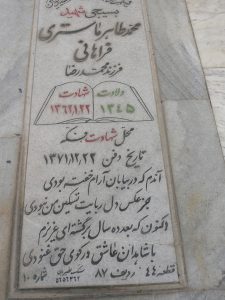 بسیجی شهید
محمد طاهر ماستری
فراهانی
فرزند محمد رضا
ولادت
شهادت
۱۳۴۵
۱۳۶۲/۱/۲۲
محل شهادت فکه
تاریخ دفن ۱۳۷۱،۱۲،۲۲
آندم که در بیابان آرام خفته بودی
جز عکس دل ربایت تسکین من نبودی
اکنون که بعد ده سال برگشته‌ای عزیزم
با شاهدان عاشق در کوی حق غنودی
قطعه ۴۴ ردیف ۸۷
شماره ۱۰